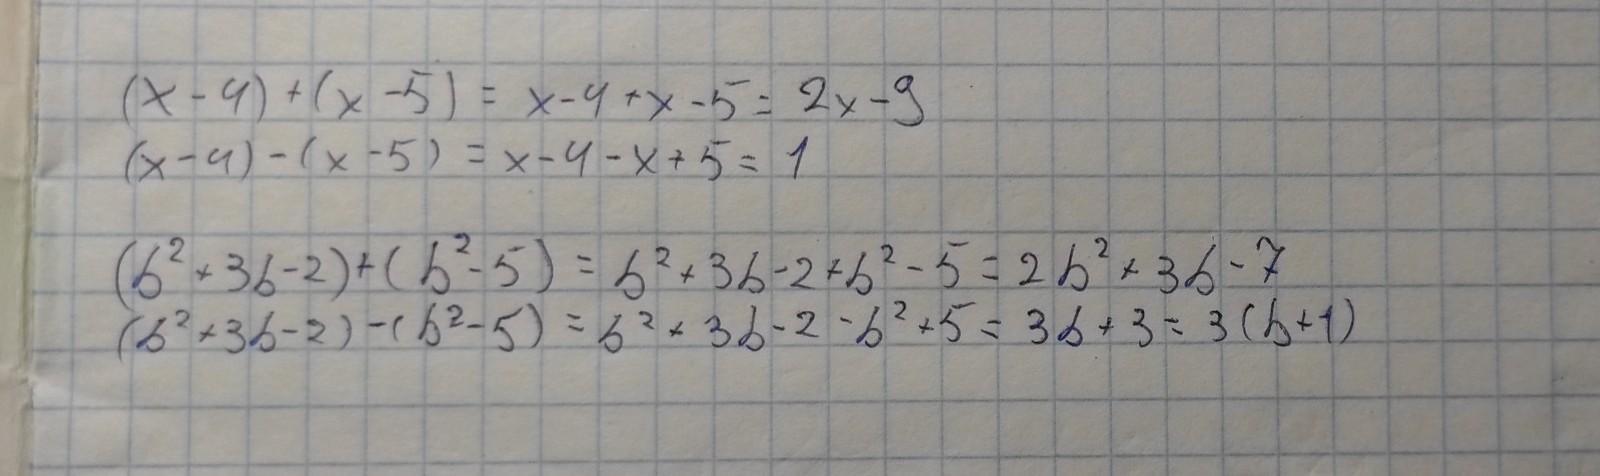 (x-4)+(x-5) = x-4+x-5= 2x-9
(x-4)-(x-5) = x-4-x+5= 1
(b²+3b-2)+(b²-5) = b²+3b-2+b²-5=2b²+3b-7
(b²+3b-2)-(b²-5) = b²+3b-2-b²+5= 3b+3= 3(b+1)